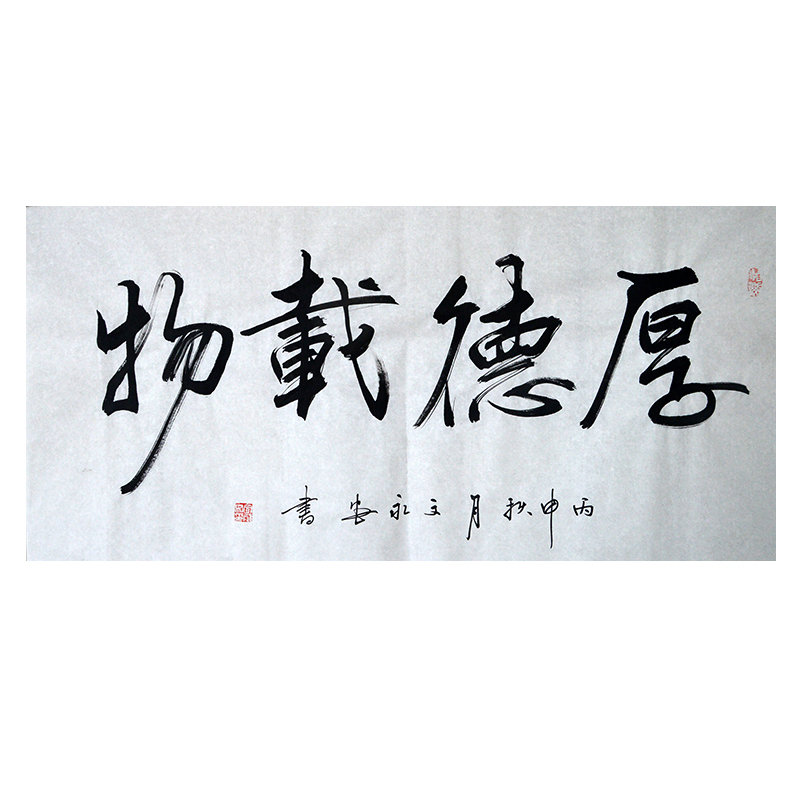 厚德載物
丙申秋月文永安書